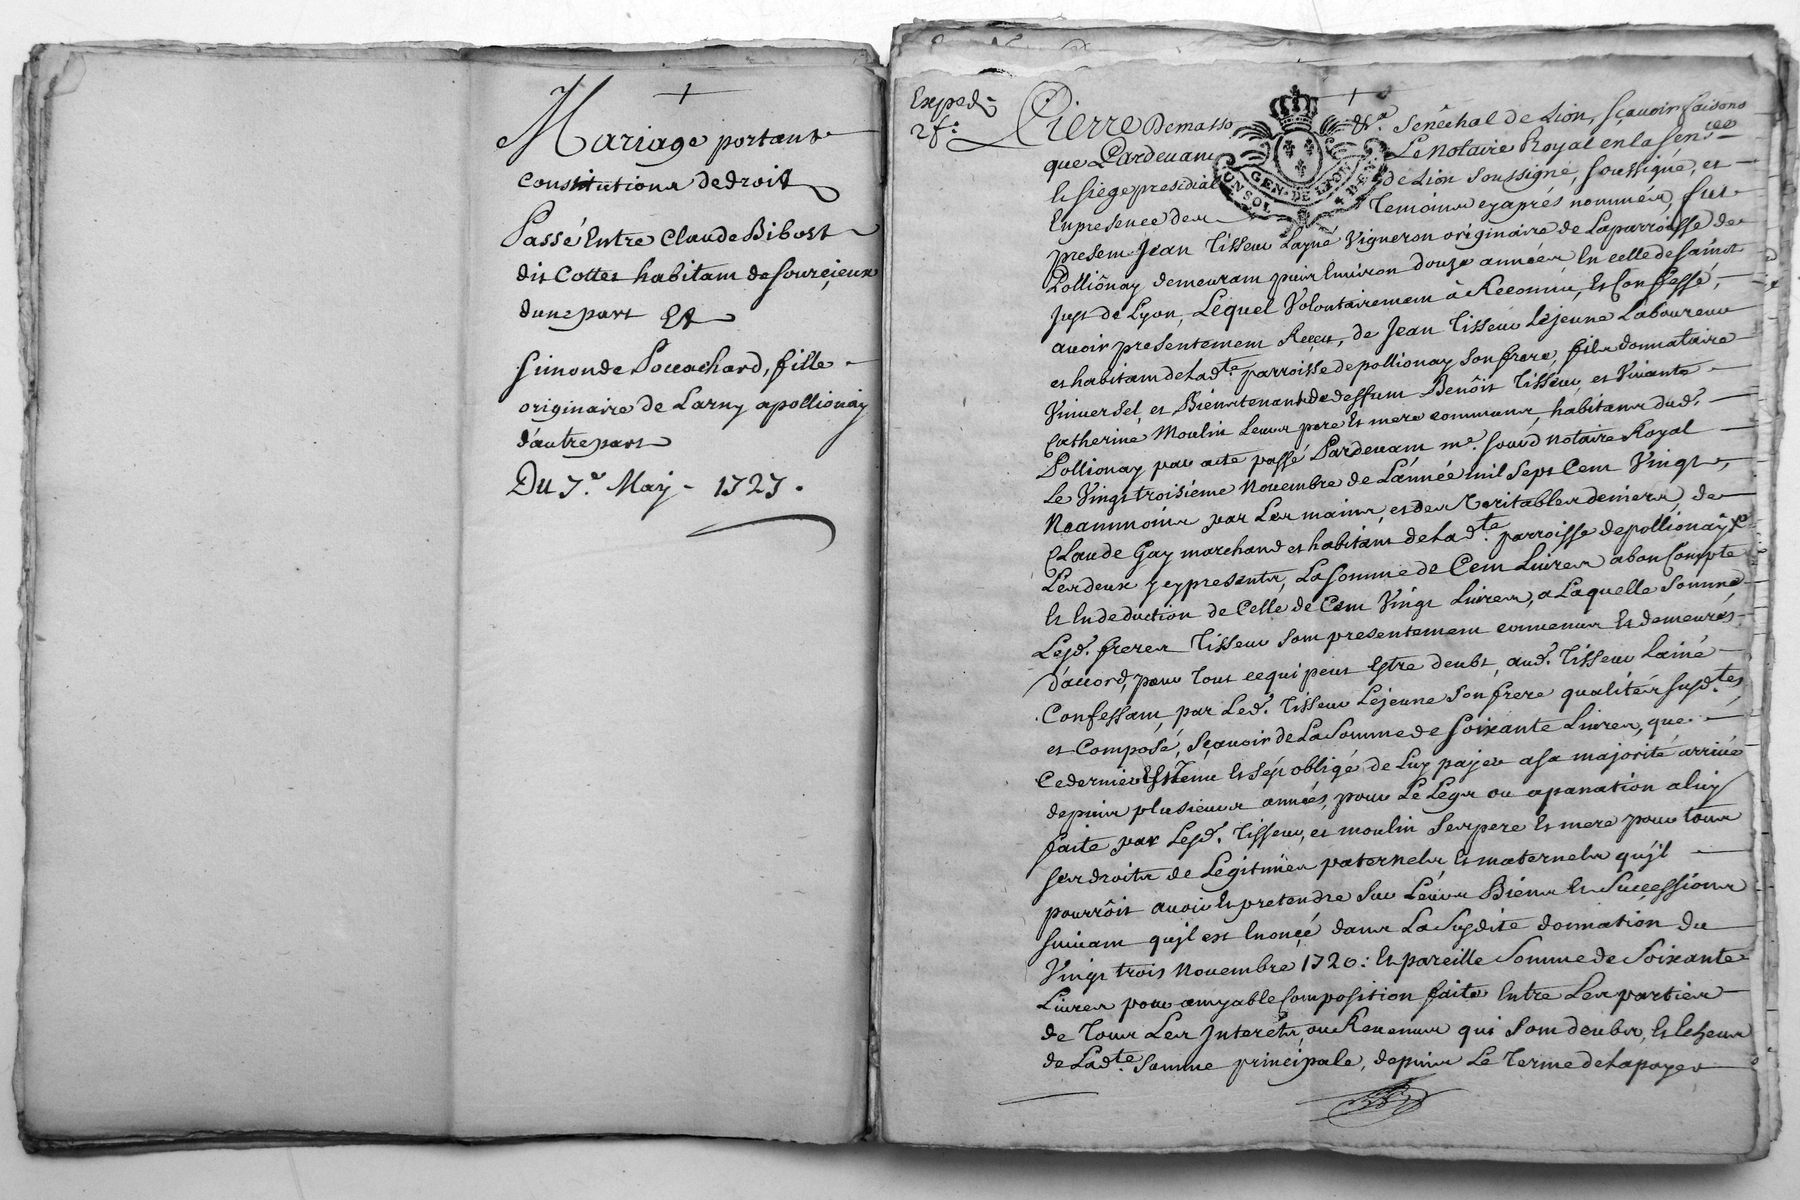 Mariage portant
constitution de droit
Passé Entre Claude Bibost
dit Cottet habitant de Sourcieux
dune part Et
Simonde Pouachard, fille
originaire de Larny a pollionay
d'autre part
Du 7.e May 1727.
Exped.
2 f.
Pierre Demasso &.a Senéchal de Lion, Sçavoir faisons
que Pardevant Le Notaire Royal en la Sen.cée
Et Siege presidial de Lion Soussigné, soussigné, et
En presence des Temoins cy aprés nommés, fut
present Jean Tisseur Layné Vigneron originaire de La parroisse de
Pollionay demeurant puis Environ douze années En celle de Saint
Just de Lyon, Lequel Volontairement à Reconnu, Et Confessé,
avoir presentement Reçeu, de Jean Tisseur Lejeune Laboureur
et habitant de Lad.te parroisse de pollionay Son frere, fils donnataire
Universel, et Biens tenant de deffunt Benôit Tisseur, et Vivante
Catherine Moulin Leurs pere Et mere communs, habitans dud.
Pollionay par acte passé Pardevant m.e notaire Royal
Le Vingt troisieme Novembre de L'année mil Sept Cent Vingt,
Neanmoins par Les mains et des Veritables deniers, de
Claude Gay marchand et habitant de Lad.te parroisse de pollionay
Les deux y cy presents, La Somme de Cent Livres a bon Compte
Et En deduction de Celle de Cent Vingt Livres, a Laquelle Somme
Lesd. freres Tisseur Sont presentement convenus Et demeurés
d'accord, pour Tout ce qui peut Estre deubt, aud. Tisseur Lainé
Confessant, par Led. Tisseur Lejeune Son frere qualités Susd.tes
et Composé, Sçavoir de La Somme de Soixante Livres, que
Ce dernier Est Tenu Et s'est obligé de Luy payer a sa majorité arrivée
depuis plusieurs années, pour Le Legs ou apanation a luy
faite par Lesd. Tisseur, et moulin Ses pere Et mere pour tous
ses droits de Legitimes paternels Et maternels qu'jl
pourrôit avoir Et pretendre Sur Leurs Biens Et Successions
suivant qu'jl est Enoncé dans La Susdite donnation du
Vingt trois Novembre 1720: Et pareille Somme de Soixante
Livres pour amyable Composition faite Entre Les parties
de Tous Les Jnterêts, ou Revenus qui Sont deubs, Et Echeus
de Lad.te Somme principale, depuis Le Terme de La payer
GEN. DE LYON